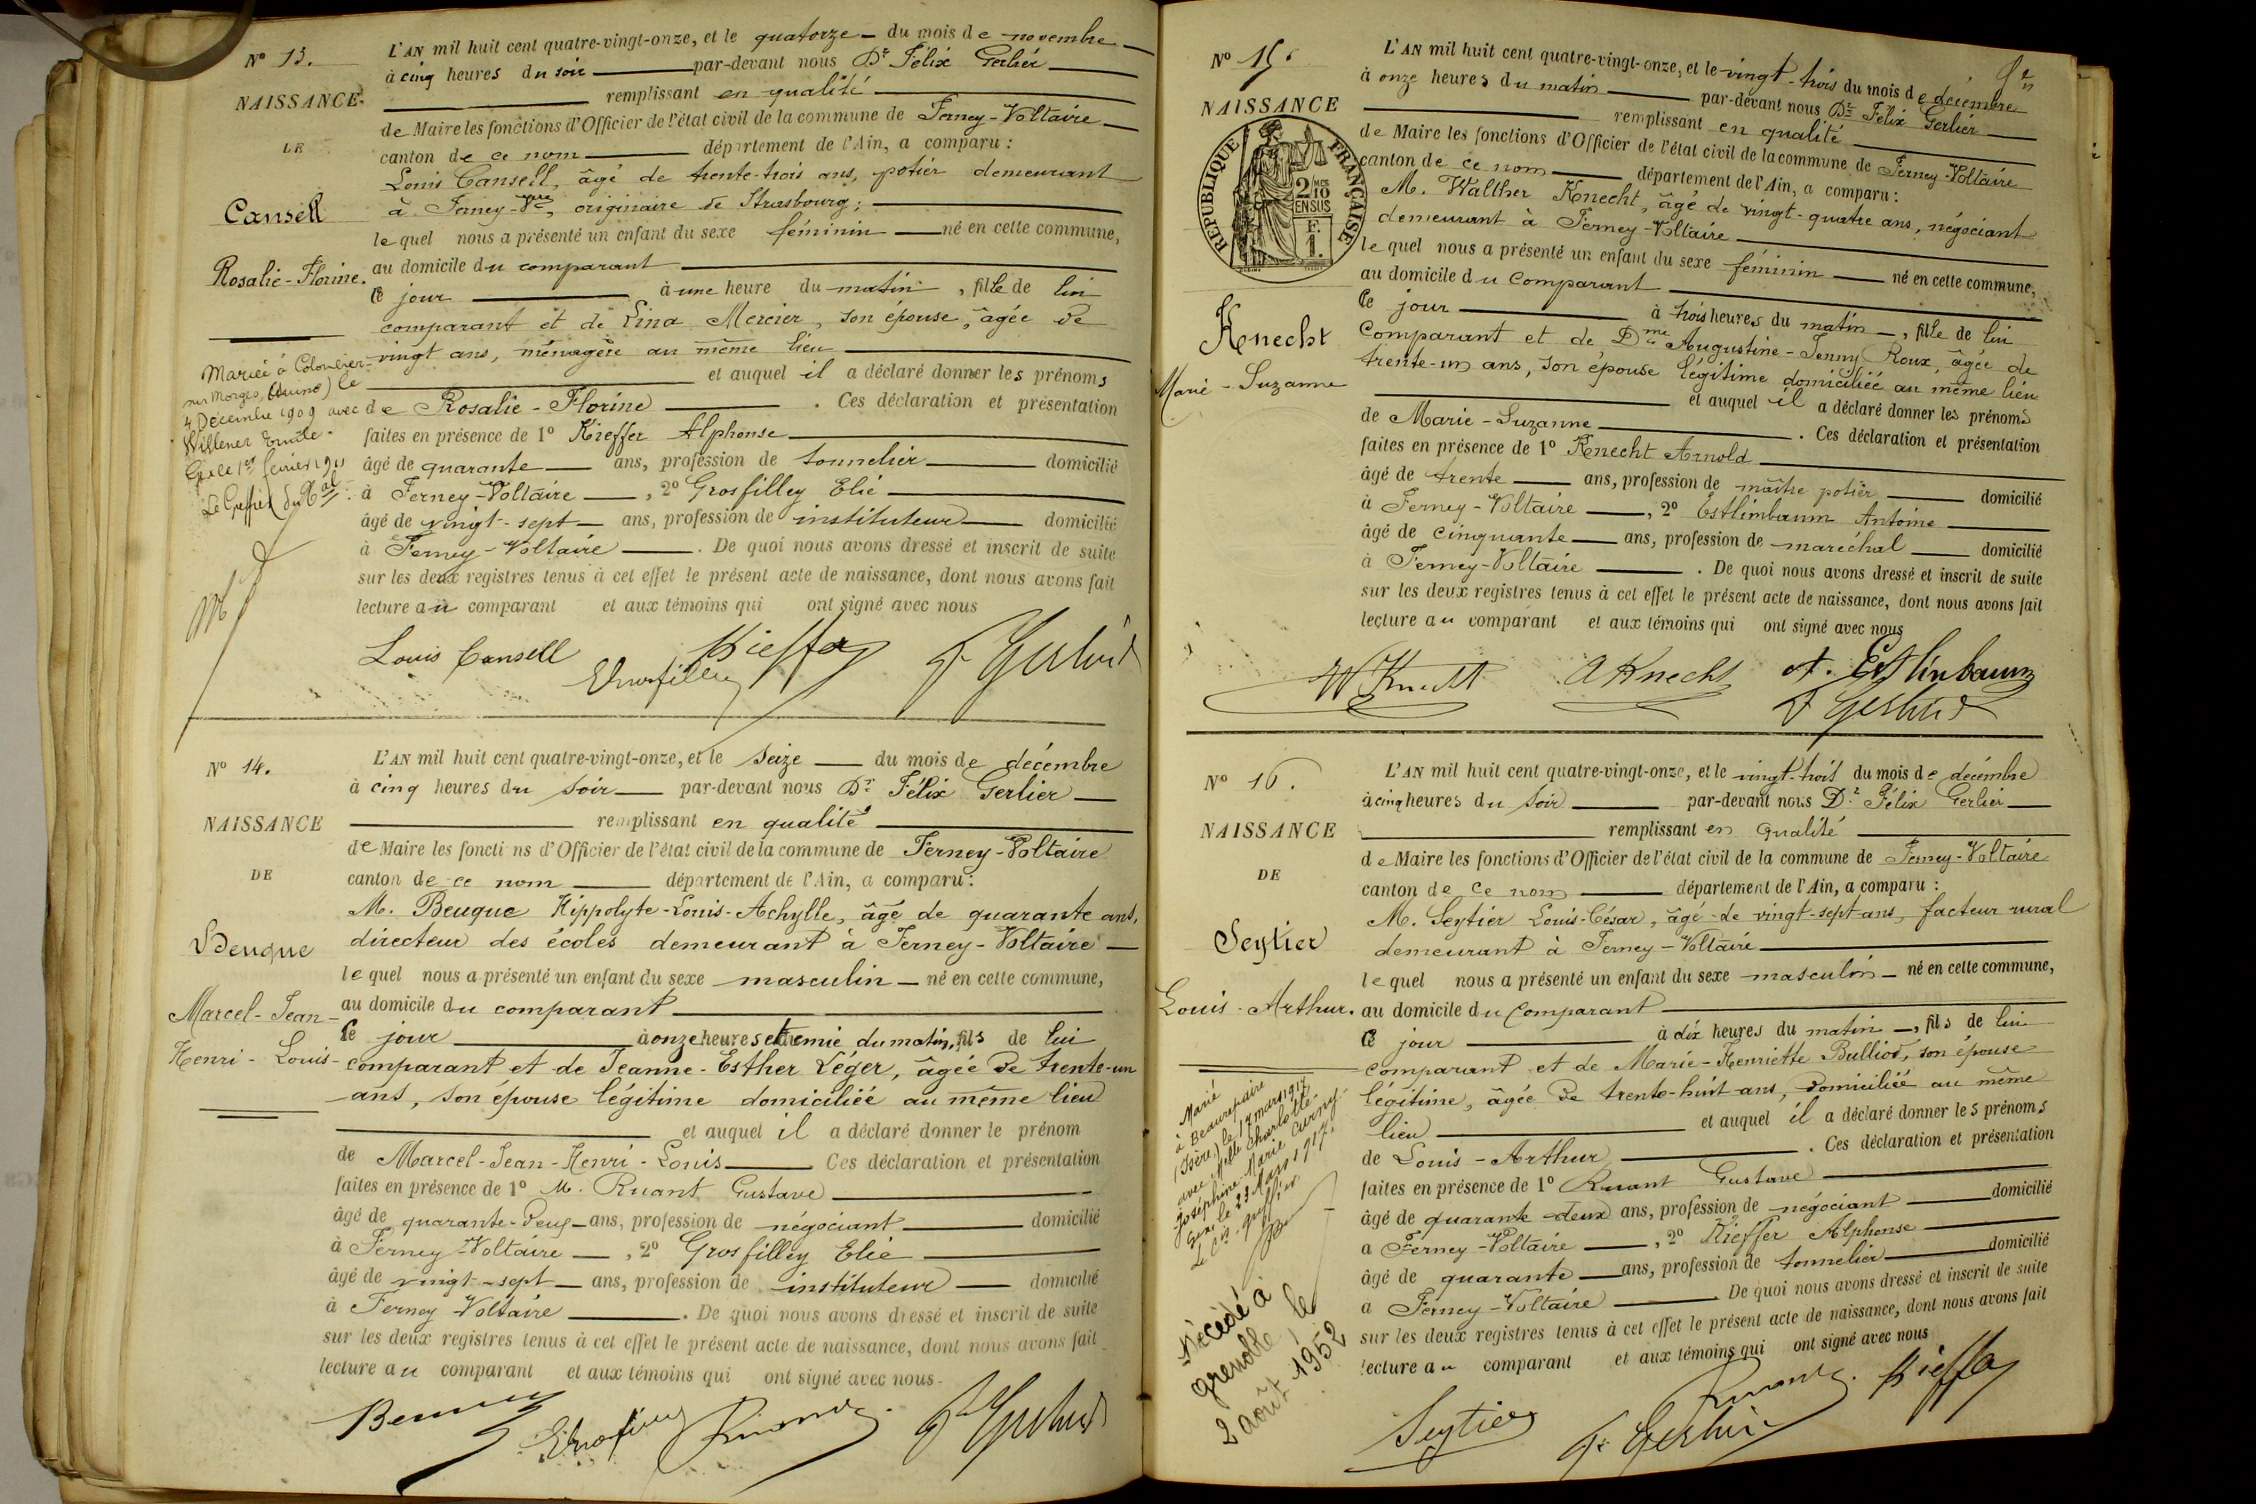 N° 13.
NAISSANCE
LE
Cansell
Rosalie-Florine.
L'AN mil huit cent quatre-vingt-onze, et le quatorze du mois de novembre
à cinq heures du soir par-devant nous Dr Félix Gerlier
remplissant en qualité
de Maire les fonctions d'Officier de l'état civil de la commune de Ferney-Voltaire
canton de ce nom département de l'Ain, a comparu :
Louis Cansell, âgé de trente-trois ans, potier demeurant
à Ferney-Vre, originaire de Strasbourg ;
le quel nous a présenté un enfant du sexe féminin né en cette commune,
au domicile du comparant
Ce jour à une heure du matin, fille de lui
comparant et de Lina Mercier, son épouse, âgée de
vingt ans, ménagère au même lieu
et auquel il a déclaré donner les prénoms
de Rosalie-Florine. Ces déclaration et présentation
faites en présence de 1° Kieffer Alphonse
âgé de quarante ans, profession de tonnelier domicilié
à Ferney-Voltaire, 2° Grosfilley Elie
âgé de vingt-sept ans, profession de instituteur domicilié
à Ferney-Voltaire. De quoi nous avons dressé et inscrit de suite
sur les deux registres tenus à cet effet le présent acte de naissance, dont nous avons fait
lecture au comparant et aux témoins qui ont signé avec nous
Mariée à Colombier
sur Morges, (Suisse) le
4 Décembre 1909 avec
Willener Emile.
Gex le 1er février 1911
Le Greffier du Bal
Louis Cansell
Kieffer
EGrosfilley
Fx Gerlier
N° 14.
NAISSANCE
DE
Beuque
Marcel-Jean-
Henri-Louis-
L'AN mil huit cent quatre-vingt-onze, et le seize du mois de décembre
à cinq heures du soir par-devant nous Dr Félix Gerlier
remplissant en qualité
de Maire les foncti ns d'Officier de l'état civil de la commune de Ferney-Voltaire
canton de ce nom département de l'Ain, a comparu :
M. Beuque Hippolyte-Louis-Achylle, âgé de quarante ans,
directeur des écoles demeurant à Ferney-Voltaire
le quel nous a présenté un enfant du sexe masculin né en cette commune,
au domicile du comparant
Ce jour à onze heures et demie du matin, fils de lui
comparant et de Jeanne-Esther Léger, âgée de trente-un
ans, son épouse légitime domiciliée au même lieu
et auquel il a déclaré donner le prénom
de Marcel-Jean-Henri-Louis Ces déclaration et présentation
faites en présence de 1° M. Ruant Gustave
âgé de quarante-deux ans, profession de négociant domicilié
à Ferney-Voltaire, 2° Grosfilley Elie
âgé de vingt-sept ans, profession de instituteur domicilié
à Ferney-Voltaire. De quoi nous avons dressé et inscrit de suite
sur les deux registres tenus à cet effet le présent acte de naissance, dont nous avons fait
lecture au comparant et aux témoins qui ont signé avec nous.
Beuque
EGrosfilley
Ruant
Fx Gerlier
N° 15.
NAISSANCE
REPUBLIQUE FRANÇAISE
2/10 EN SUS
F.
1.
Knecht
Marie-Suzanne
L'AN mil huit cent quatre-vingt-onze, et le vingt-trois du mois de décembre
à onze heures du matin par-devant nous Dr Félix Gerlier
remplissant en qualité
de Maire les fonctions d'Officier de l'état civil de la commune de Ferney-Voltaire
canton de ce nom département de l'Ain, a comparu :
M. Walther Knecht, âgé de vingt-quatre ans, négociant
demeurant à Ferney-Voltaire
le quel nous a présenté un enfant du sexe féminin né en cette commune,
au domicile du comparant
Ce jour à trois heures du matin, fille de lui
comparant et de Dme Augustine-Jenny Roux, âgée de
trente-un ans, son épouse légitime domiciliée au même lieu
et auquel il a déclaré donner les prénoms
de Marie-Suzanne. Ces déclaration et présentation
faites en présence de 1° Knecht Arnold
âgé de trente ans, profession de maître potier domicilié
à Ferney-Voltaire, 2° Estlimbaum Antoine
âgé de cinquante ans, profession de maréchal domicilié
à Ferney-Voltaire. De quoi nous avons dressé et inscrit de suite
sur les deux registres tenus à cet effet le présent acte de naissance, dont nous avons fait
lecture au comparant et aux témoins qui ont signé avec nous
W Knecht
A Knecht
A. Estlinbaum
Fx Gerlier
N° 16.
NAISSANCE
DE
Seytier
Louis-Arthur.
L'AN mil huit cent quatre-vingt-onze, et le vingt-trois du mois de décembre
à cinq heures du soir par-devant nous Dr Félix Gerlier
remplissant en qualité
de Maire les fonctions d'Officier de l'état civil de la commune de Ferney-Voltaire
canton de ce nom département de l'Ain, a comparu :
M. Seytier Louis-César, âgé de vingt-sept ans, facteur rural
demeurant à Ferney-Voltaire
le quel nous a présenté un enfant du sexe masculin né en cette commune,
au domicile du comparant
Ce jour à dix heures du matin, fils de lui
comparant et de Marie-Henriette Bulliod, son épouse
légitime, âgée de trente-huit ans, domiciliée au même
lieu et auquel il a déclaré donner les prénoms
de Louis-Arthur. Ces déclaration et présentation
faites en présence de 1° Ruant Gustave
âgé de quarante-deux ans, profession de négociant domicilié
a Ferney-Voltaire, 2° Kieffer Alphonse
âgé de quarante ans, profession de tonnelier domicilié
a Ferney-Voltaire. De quoi nous avons dressé et inscrit de suite
sur les deux registres tenus à cet effet le présent acte de naissance, dont nous avons fait
lecture au comparant et aux témoins qui ont signé avec nous
Marié
à Beaurepaire
(Isère) le 17 mars 1917
avec Melle Charlotte
Joséphine Marie Curny.
Gex le 23 Mars 1917.
Le Cis-greffier
Décédé à
Grenoble le
2 août 1952
Seytier
Fx Gerlier
Ruant
Kieffer